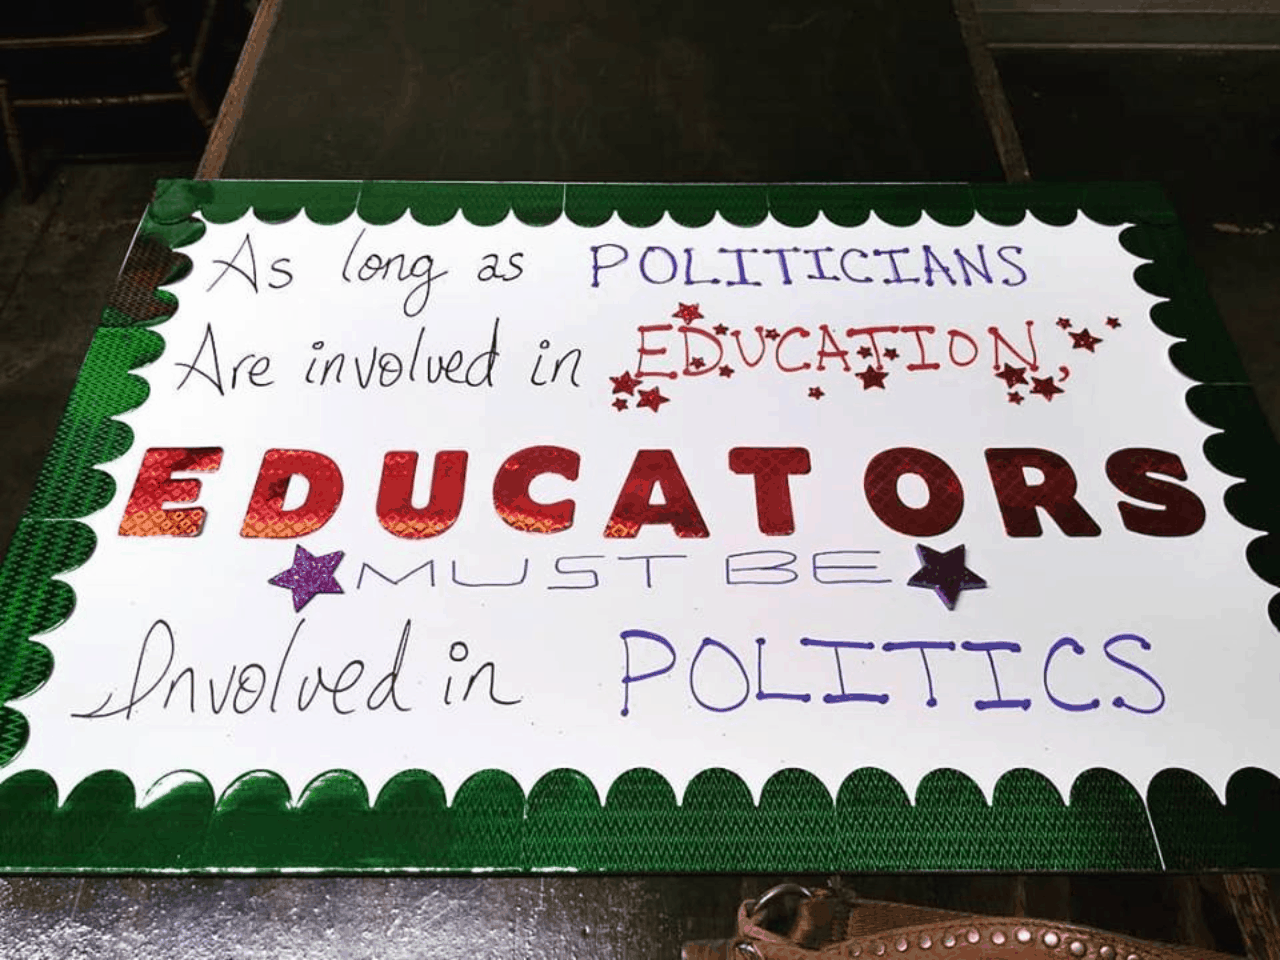 As long as POLITICIANS
Are involved in EDUCATION,
EDUCATORS
MUST BE
Involved in POLITICS